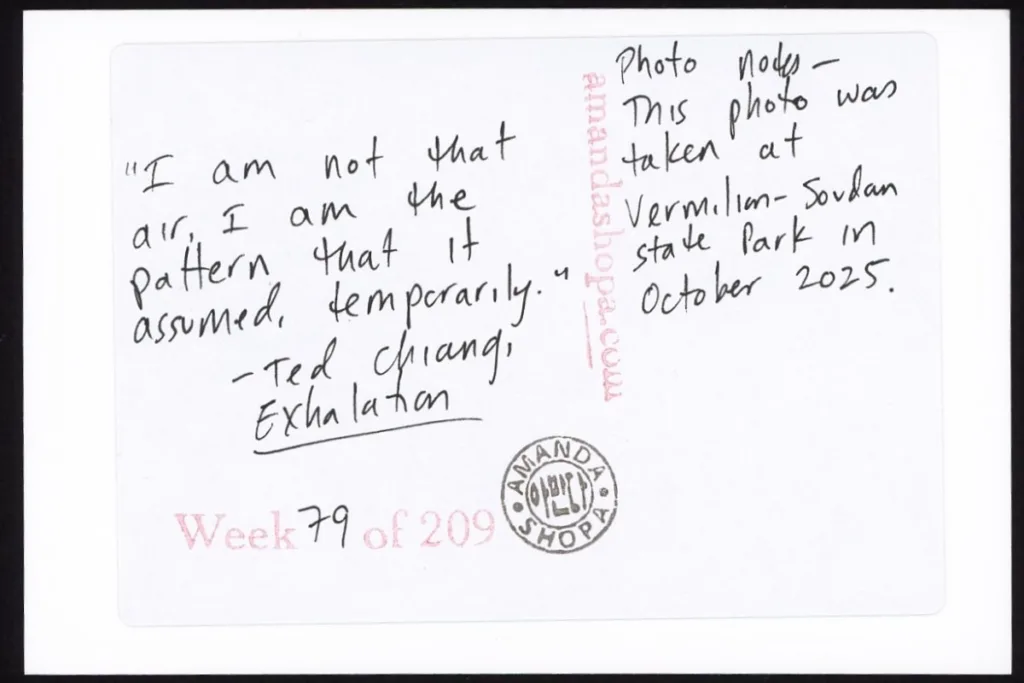 "I am not that
air, I am the
pattern that it
assumed, temporarily."
-Ted Chiang,
Exhalation
Week 79 of 209
amandashopa.com
Photo nodes-
This photo was
taken at
Vermilion-Soudan
State Park in
October 2025.
AMANDA
아만다
SHOPA